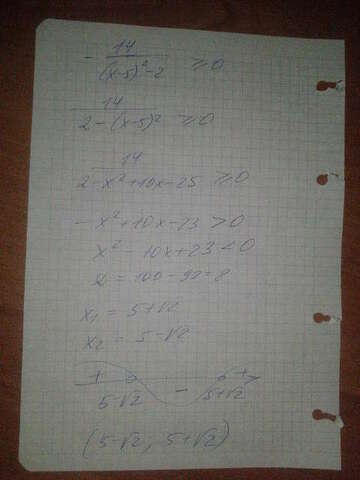 - 14/((x-5)²-2) ≥ 0
14/(2-(x-5)²) ≥ 0
14/(2-x²+10x-25) ≥ 0
-x²+10x-23 > 0
x²-10x+23 < 0
D = 100-92 = 8
x₁ = 5+√2
x₂ = 5-√2
+ - +
5-√2 5+√2
(5-√2, 5+√2)